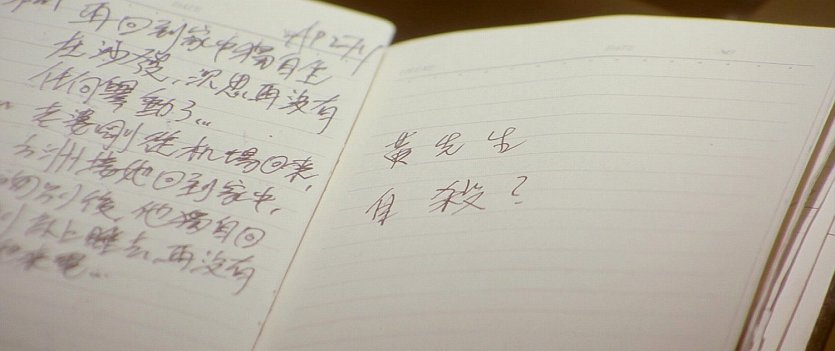 再回到家中獨自坐
在沙發,沉思,再沒有
任何舉動了...
老婆剛從机場回來,
洲接她回到家中,
吻別後,他獨自回
上睡去,再沒有
來呢...
DATE
黃先生
自殺?